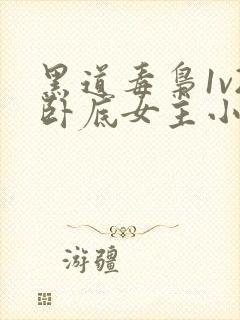 黑道毒枭1v
卧底女主小
游疆